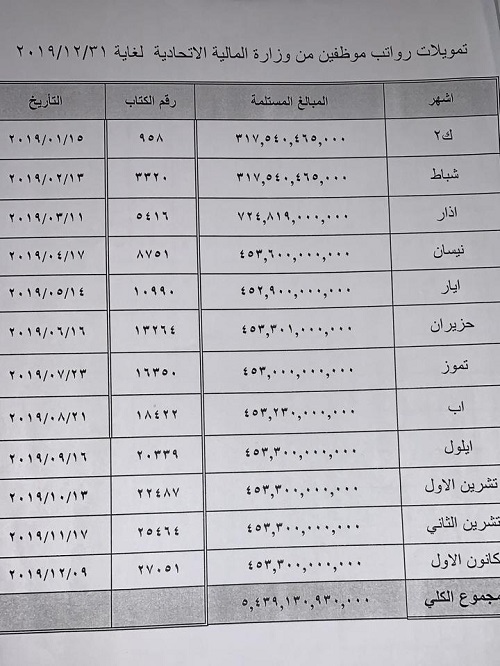 تمويلات رواتب موظفين من وزارة المالية الاتحادية لغاية ٢٠١٩/١٢/٣١
اشهر المبالغ المستلمة رقم الكتاب التأريخ
ك٢ ٣١٧,٥٤٠,٤٦٥,٠٠٠ ٩٥٨ ٢٠١٩/٠١/١٥
شباط ٣١٧,٥٤٠,٤٦٥,٠٠٠ ٣٣٢٠ ٢٠١٩/٠٢/١٣
اذار ٧٢٤,٨١٩,٠٠٠,٠٠٠ ٥٤١٦ ٢٠١٩/٠٣/١١
نيسان ٤٥٣,٦٠٠,٠٠٠,٠٠٠ ٨٧٥١ ٢٠١٩/٠٤/١٧
ايار ٤٥٢,٩٠٠,٠٠٠,٠٠٠ ١٠٩٩٠ ٢٠١٩/٠٥/١٤
حزيران ٤٥٣,٣٠١,٠٠٠,٠٠٠ ١٣٢٦٤ ٢٠١٩/٠٦/١٦
تموز ٤٥٣,٠٠٠,٠٠٠,٠٠٠ ١٦٣٥٠ ٢٠١٩/٠٧/٢٣
اب ٤٥٣,٢٣٠,٠٠٠,٠٠٠ ١٨٤٢٢ ٢٠١٩/٠٨/٢١
ايلول ٤٥٣,٣٠٠,٠٠٠,٠٠٠ ٢٠٣٣٩ ٢٠١٩/٠٩/١٦
تشرين الاول ٤٥٣,٣٠٠,٠٠٠,٠٠٠ ٢٢٤٨٧ ٢٠١٩/١٠/١٣
تشرين الثاني ٤٥٣,٣٠٠,٠٠٠,٠٠٠ ٢٥٤٦٤ ٢٠١٩/١١/١٧
كانون الاول ٤٥٣,٣٠٠,٠٠٠,٠٠٠ ٢٧٠٥١ ٢٠١٩/١٢/٠٩
مجموع الكلي ٥,٤٣٩,١٣٠,٩٣٠,٠٠٠